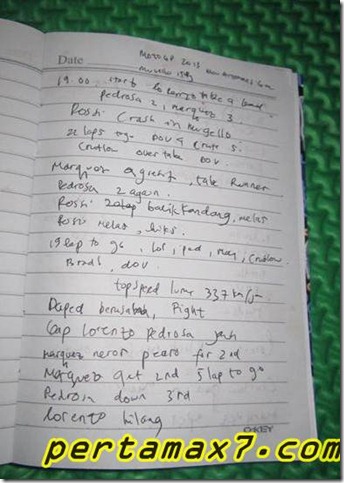 Date MotoGP 2013
Mugello Italy
19.00 start lorenzo take a lead
Pedrosa 2, marquez 3.
Rossi Crash in mugello
22 laps to go DOV & Crut 5.
Crutlow over take DOV.
Marquez again, take Runner
Pedrosa 2 again.
Rossi balik kandang, nelas
Rossi nelas, hiks.
19 lap to go, lor, ped, mar, Crutlow.
Bradl, dov.
topspeed lume 337 km/j
Daped berusaha, Fight
Gap lorenzo pedrosa jauh
marquez neror pedro for 2nd
Marquez get 2nd 5 lap to go
Pedrosa down 3rd
lorenzo hilang
O-KEY
pertamax7.com